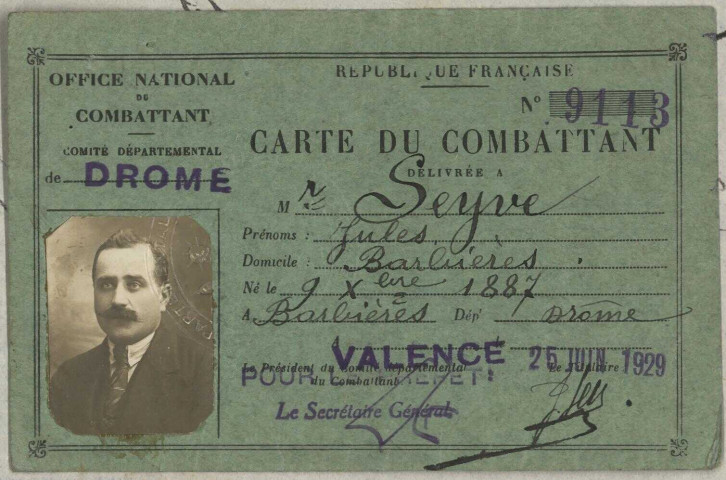 OFFICE NATIONAL
DU
COMBATTANT
COMITÉ DÉPARTEMENTAL
de DROME
RÉPUBLIQUE FRANÇAISE
N° 9113
CARTE DU COMBATTANT
DÉLIVRÉE A
M r Seyve
Prénoms : Jules
Domicile : Barbières
Né le 9 Xbre 1887
A Barbières Dép' Drôme
VALENCE 25 JUIN 1929
Le Président du Comité départemental Le Titulaire
du Combattant
POUR LE PRÉFET:
Le Secrétaire Général